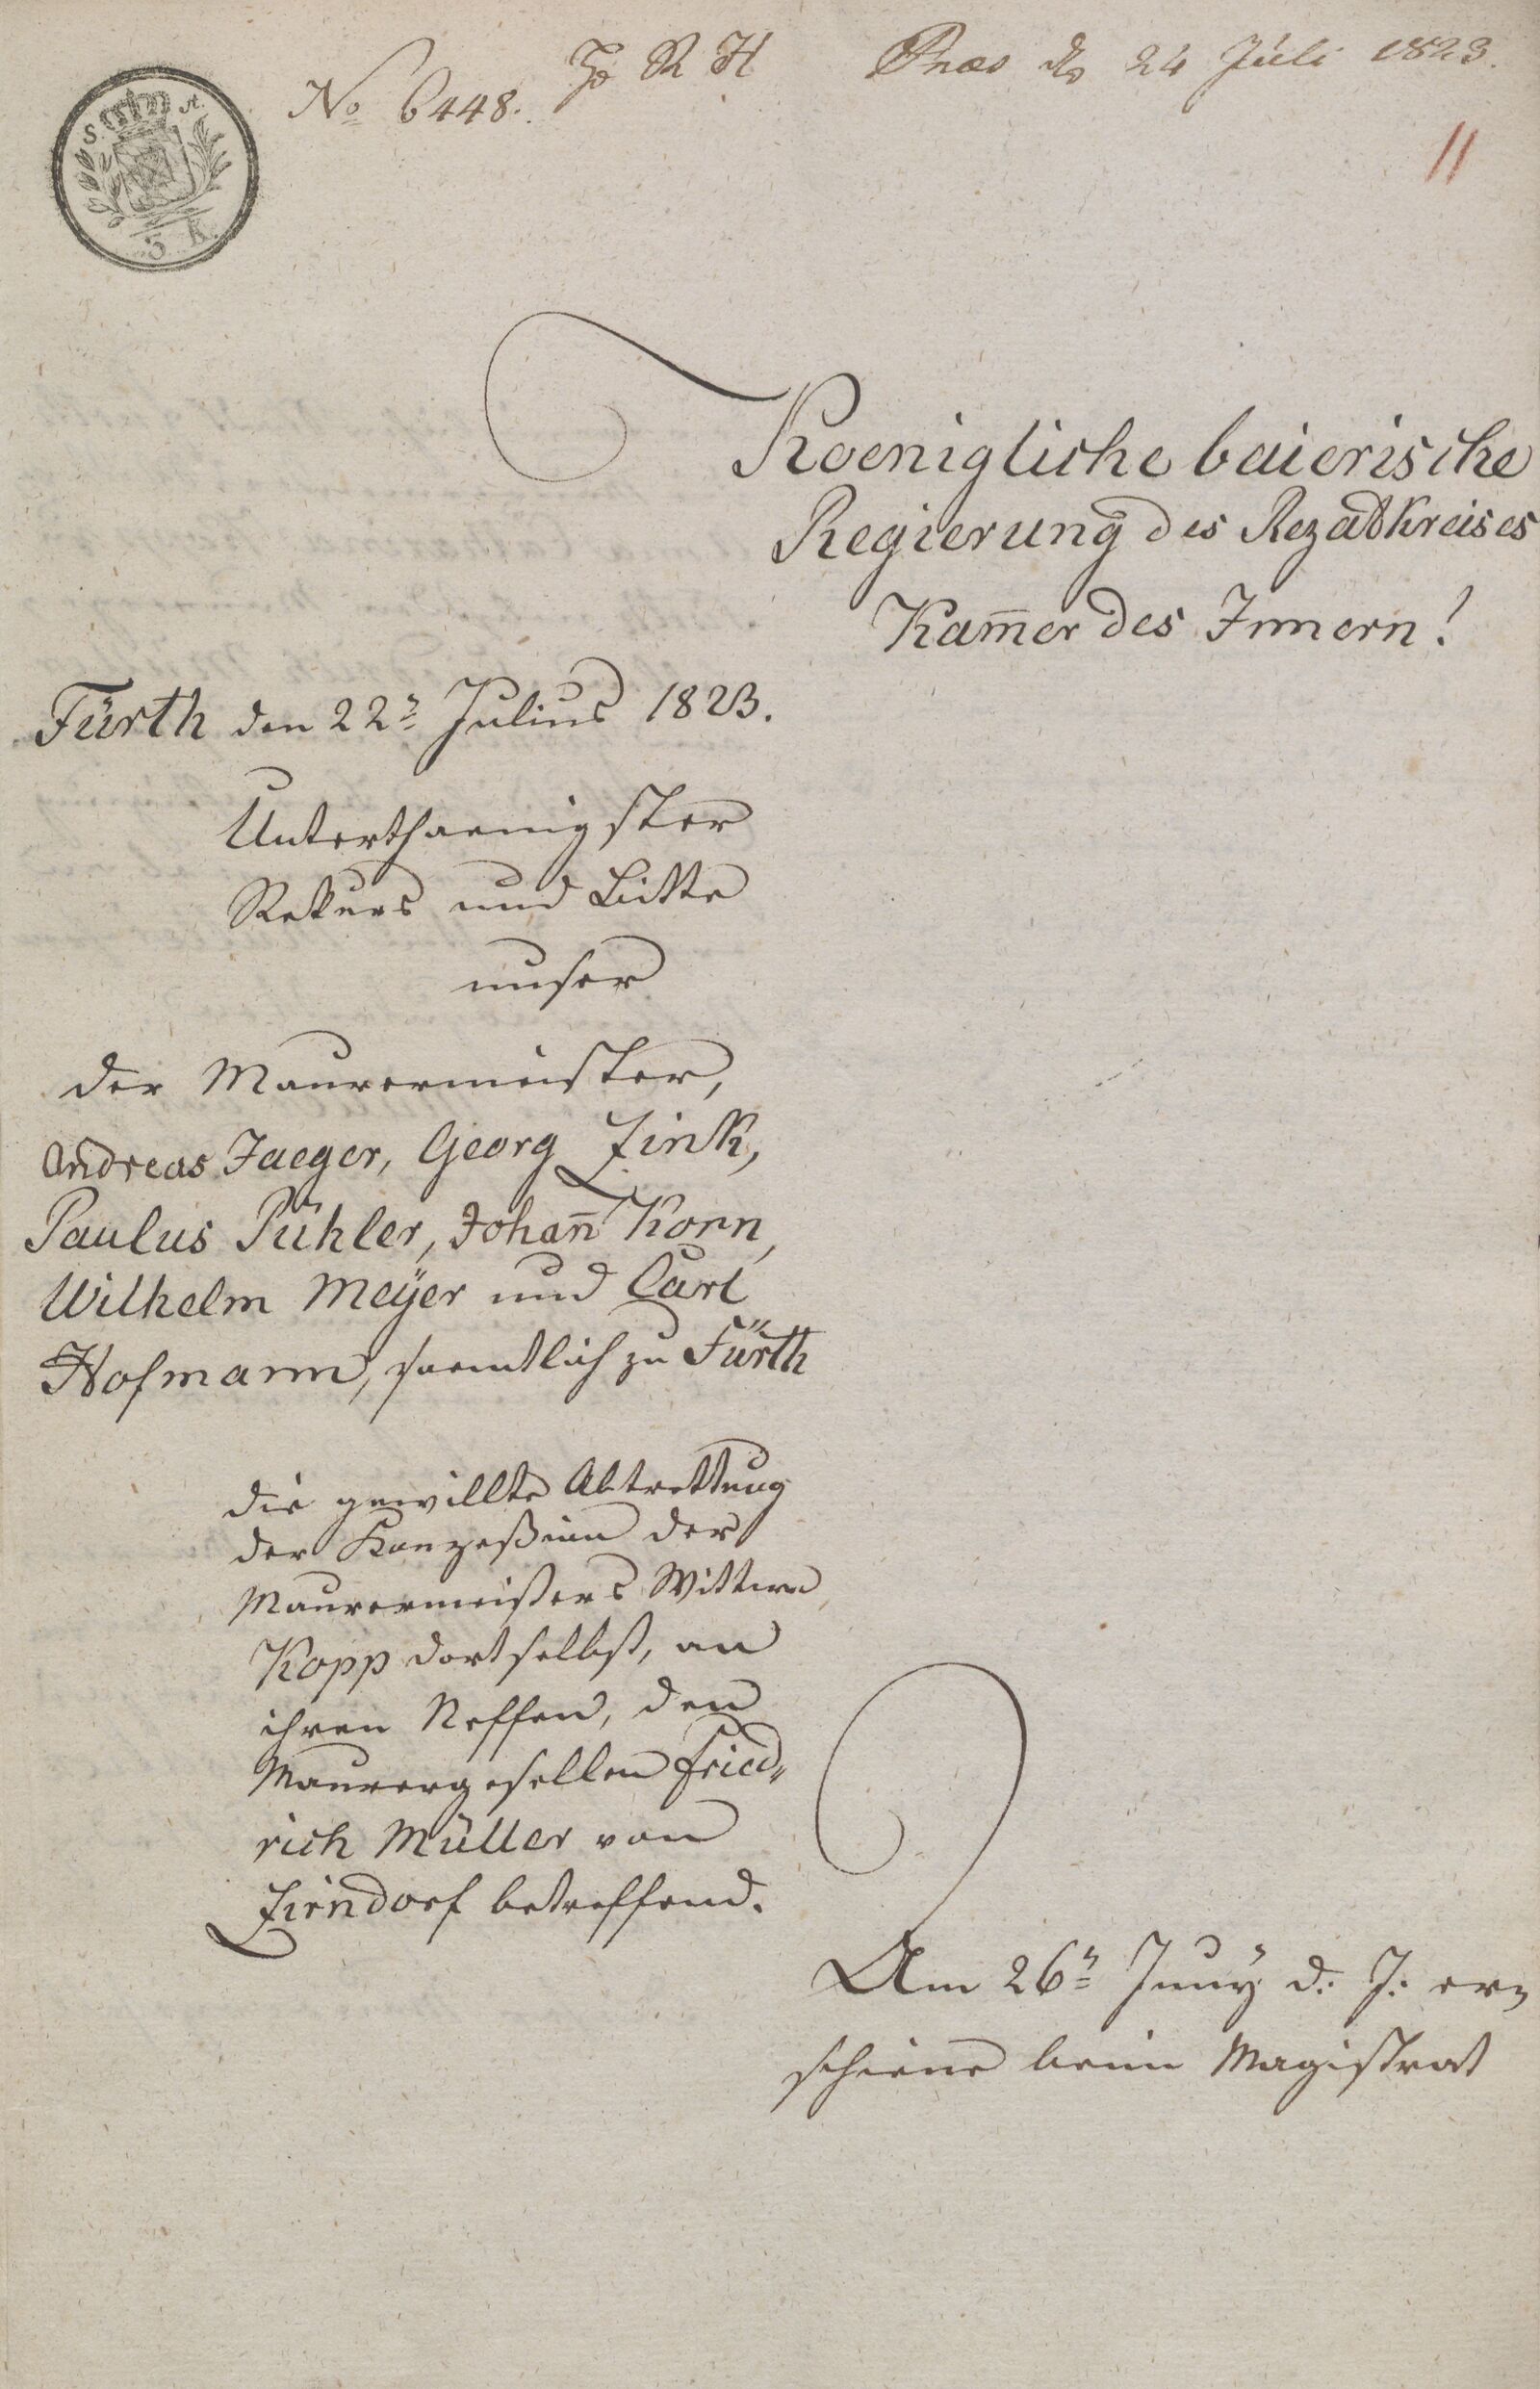 No 6448.
Praes ds 24 Juli 1823.
11
S. A.
5 K.
Koenigliche baierische
Regierung des Rezatkreises
Kam̅er des Innern!
Fürth den 22n Julius 1823.
Unterthaenigster
Rekurs und Bitte
unser
der Maurermeister,
Andreas Jaeger, Georg Zink,
Paulus Pühler, Johan̅ Korn,
Wilhelm Meÿer und Carl
Hofmann, saemtlich zu Fürth
die gewillte Abtrettung
der Konzeßion der
Maurermeisters Wittwe
Kopp dortselbst, an
ihren Neffen, den
Maurergesellen Fried„
rich Müller von
Zirndorf betreffend.
Am 26n Juny d. J: er„
schiene beim Magistrat